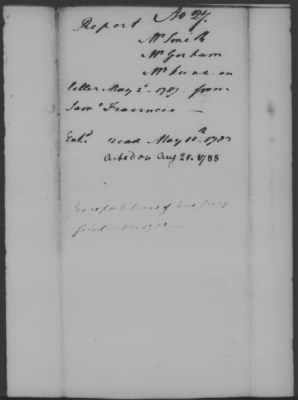 Report No 27.
Mr Smith
Mr Gorham
Mr Kane on
letter May 2d 1787 from
Saml Fraunces
Entd. read May 10th 1787
acted on Aug 28. 1788